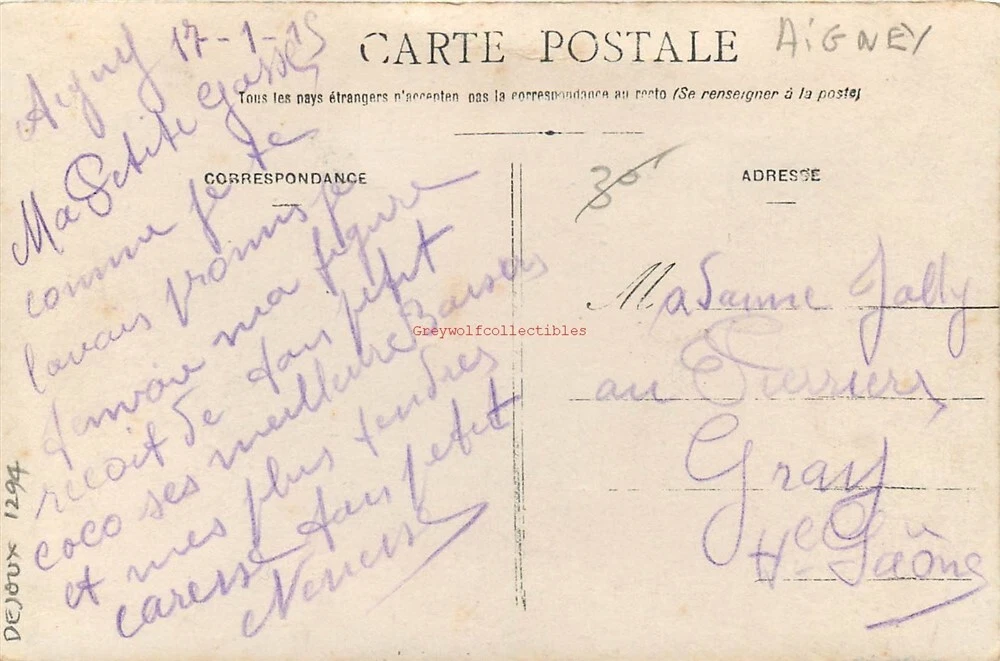 CARTE POSTALE
AiGNEY
Tous les pays étrangers n'acceptent pas la correspondance au recto (Se renseigner à la poste)
CORRESPONDANCE
Aigney 17-1-15
Ma Petite Gosses
comme je te
lavais promis je
tenvoie ma figure
recoit de ton petit
coco ses meilleure Baisers
et mes plus tendres
caresse ton petit
Nenesse
ADRESSE
30
Madame Jolly
au Perriers
Gray
Hte Saône
Greywolfcollectibles
DEJOUX 1294